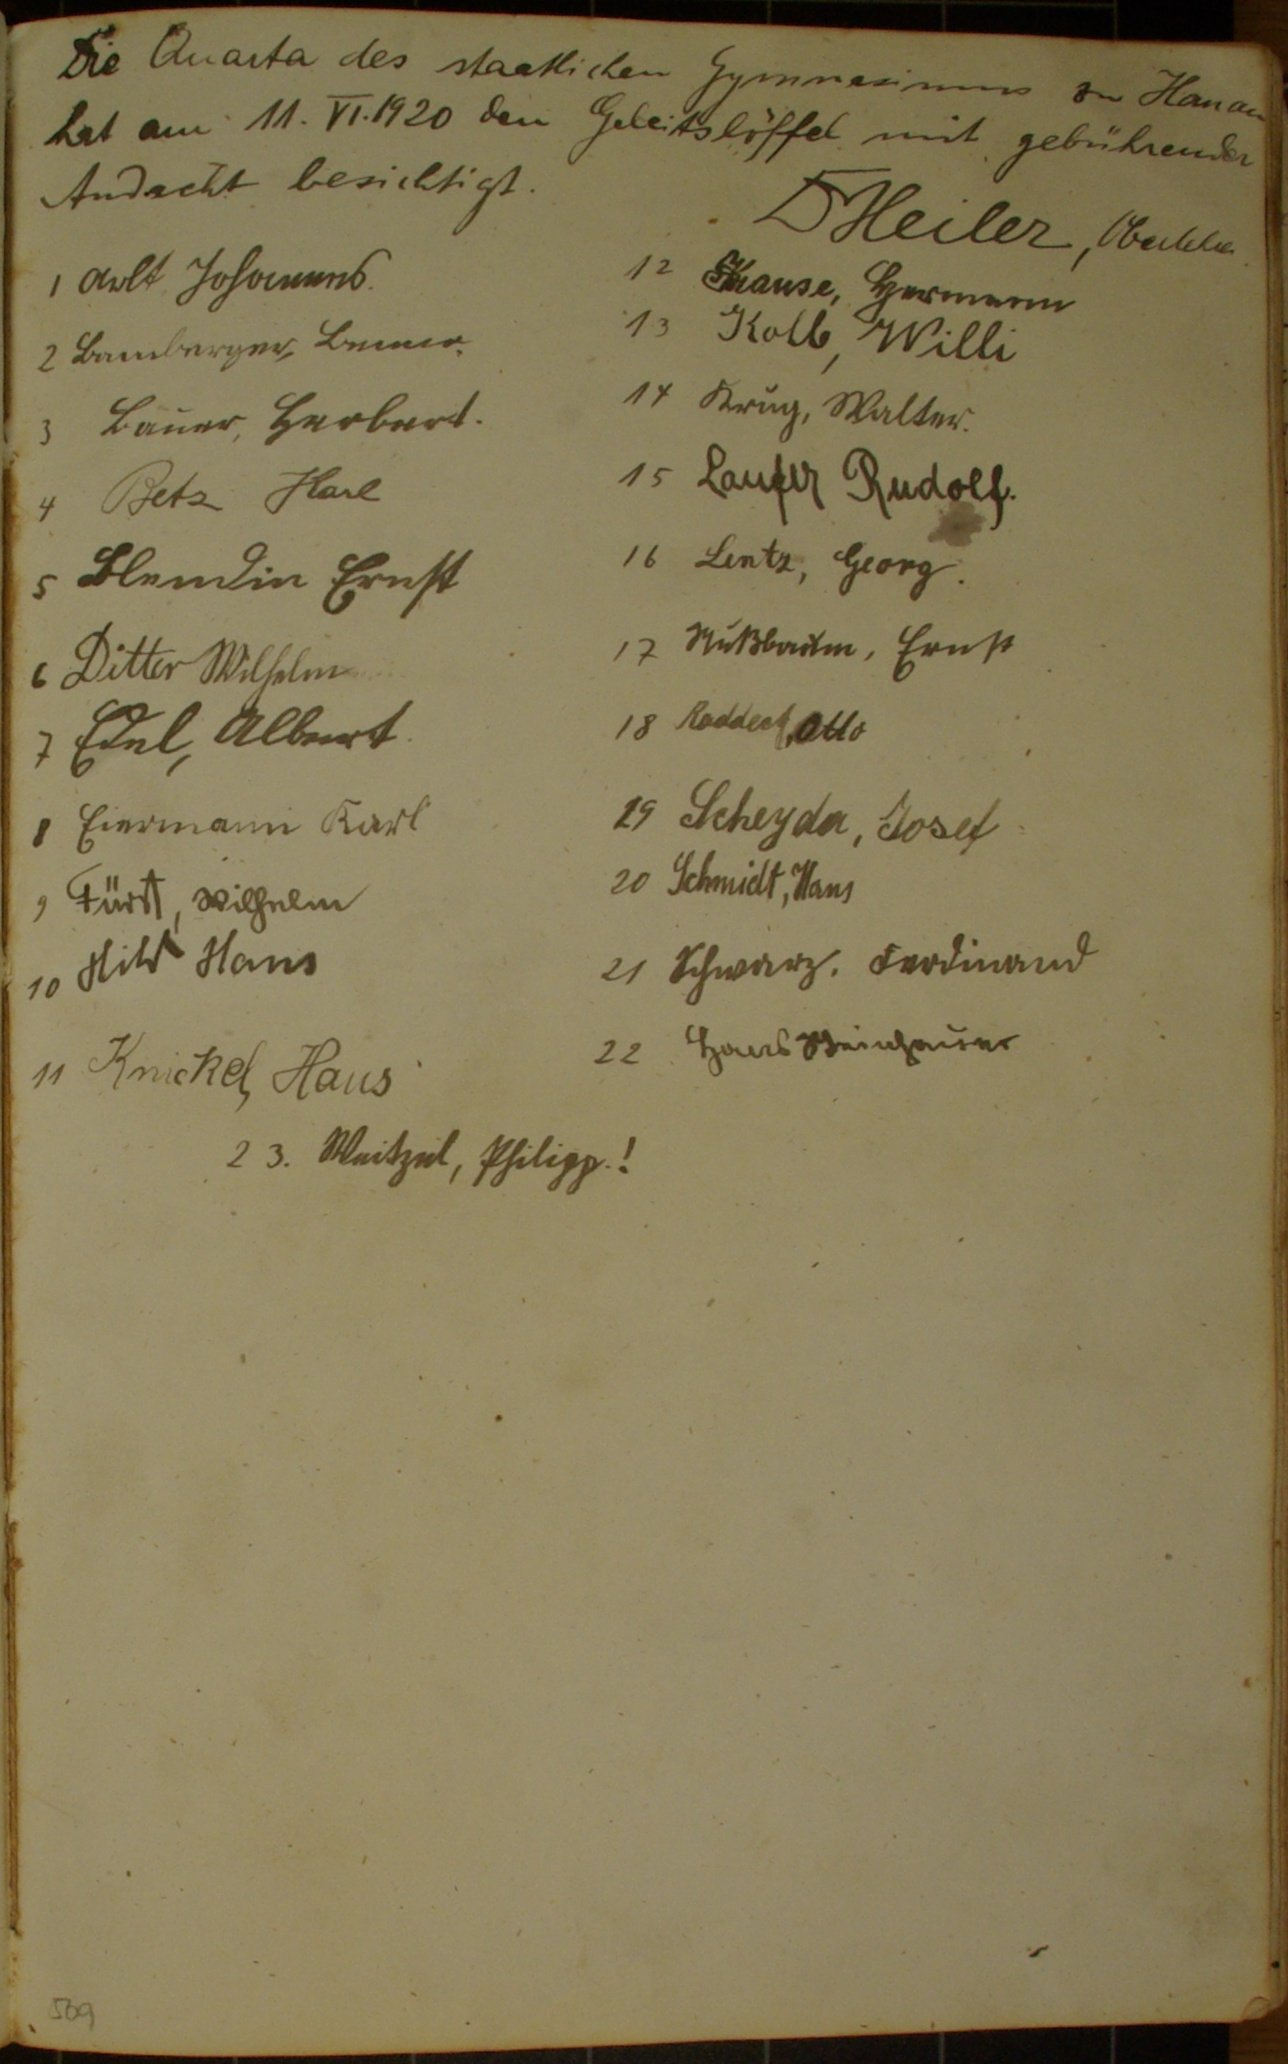 Die Quarta des staatlichen Gymnasiums zu Hanau
hat am 11. VI. 1920 den Geleitslöffel mit gebührender
Andacht besichtigt.
D Heiler, Oberlehrer
1 Arlt Johannes.
2 Bamberger, Benno.
3 Bauer, Herbert.
4 Betz Karl
5 Blendin Ernst
6 Ditter Wilhelm
7 Edel, Albert
8 Eiermann Karl
9 Fürst, Wilhelm
10 Hild Hans
11 Knickel, Hans
12 Krause, Hermann
13 Kolb, Willi
14 Krug, Walter.
15 Laufer Rudolf.
16 Lentz, Georg.
17 Nußbaum, Ernst
18 Otto
19 Scheyda, Josef
20 Schmidt, Hans
21 Schwarz, Ferdinand
22 Hans Steinhauer
23. Weitzel, Philipp.!
509